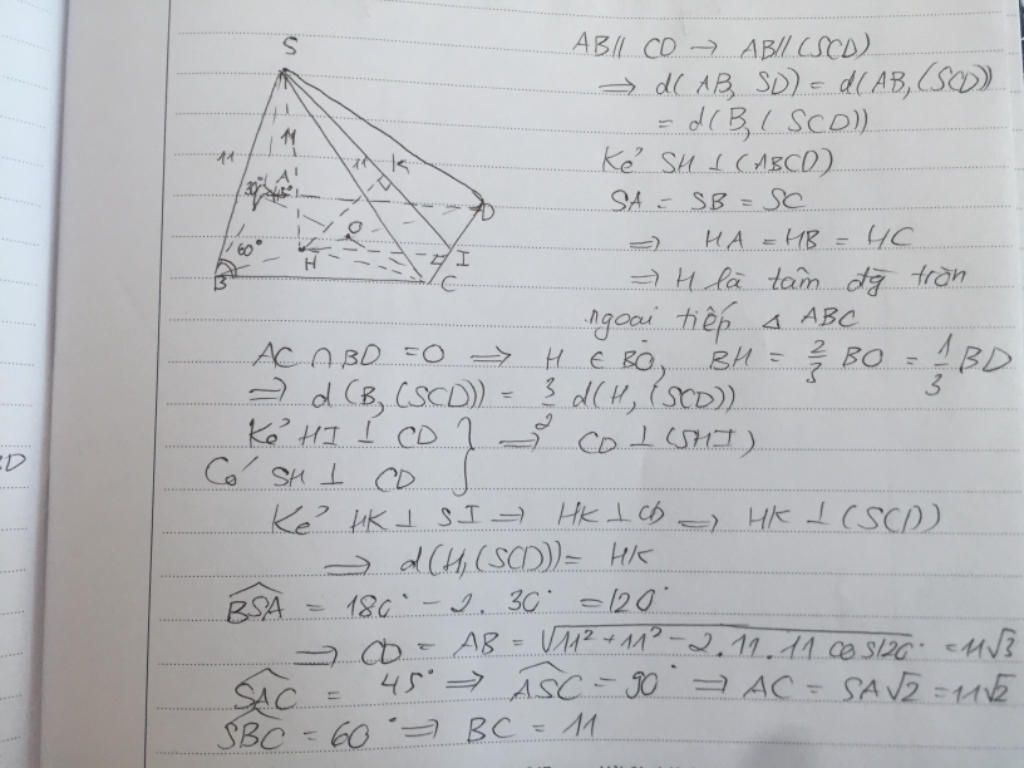 S
11
11
11
K
A
30°
45°
D
O
60°
H
I
B
C
AB // CD → AB // (SCD)
⇒ d(AB, SD) = d(AB, (SCD))
= d(B, (SCD))
Kẻ SH ⊥ (ABCD)
SA = SB = SC
⇒ HA = HB = HC
⇒ H là tâm đg tròn
ngoại tiếp △ ABC
AC ∩ BD = O ⇒ H ∈ BO, BH = 2/3 BO = 1/3 BD
⇒ d(B, (SCD)) = 3/2 d(H, (SCD))
Kẻ HI ⊥ CD } ⇒ CD ⊥ (SHI)
Có SH ⊥ CD
Kẻ HK ⊥ SI ⇒ HK ⊥ CD ⇒ HK ⊥ (SCD)
⇒ d(H, (SCD)) = HK
BSA = 180° - 2. 30° = 120°
⇒ CD = AB = √(11² + 11² - 2. 11. 11 cos120°) = 11√3
SAC = 45° ⇒ ASC = 90° ⇒ AC = SA√2 = 11√2
SBC = 60° ⇒ BC = 11